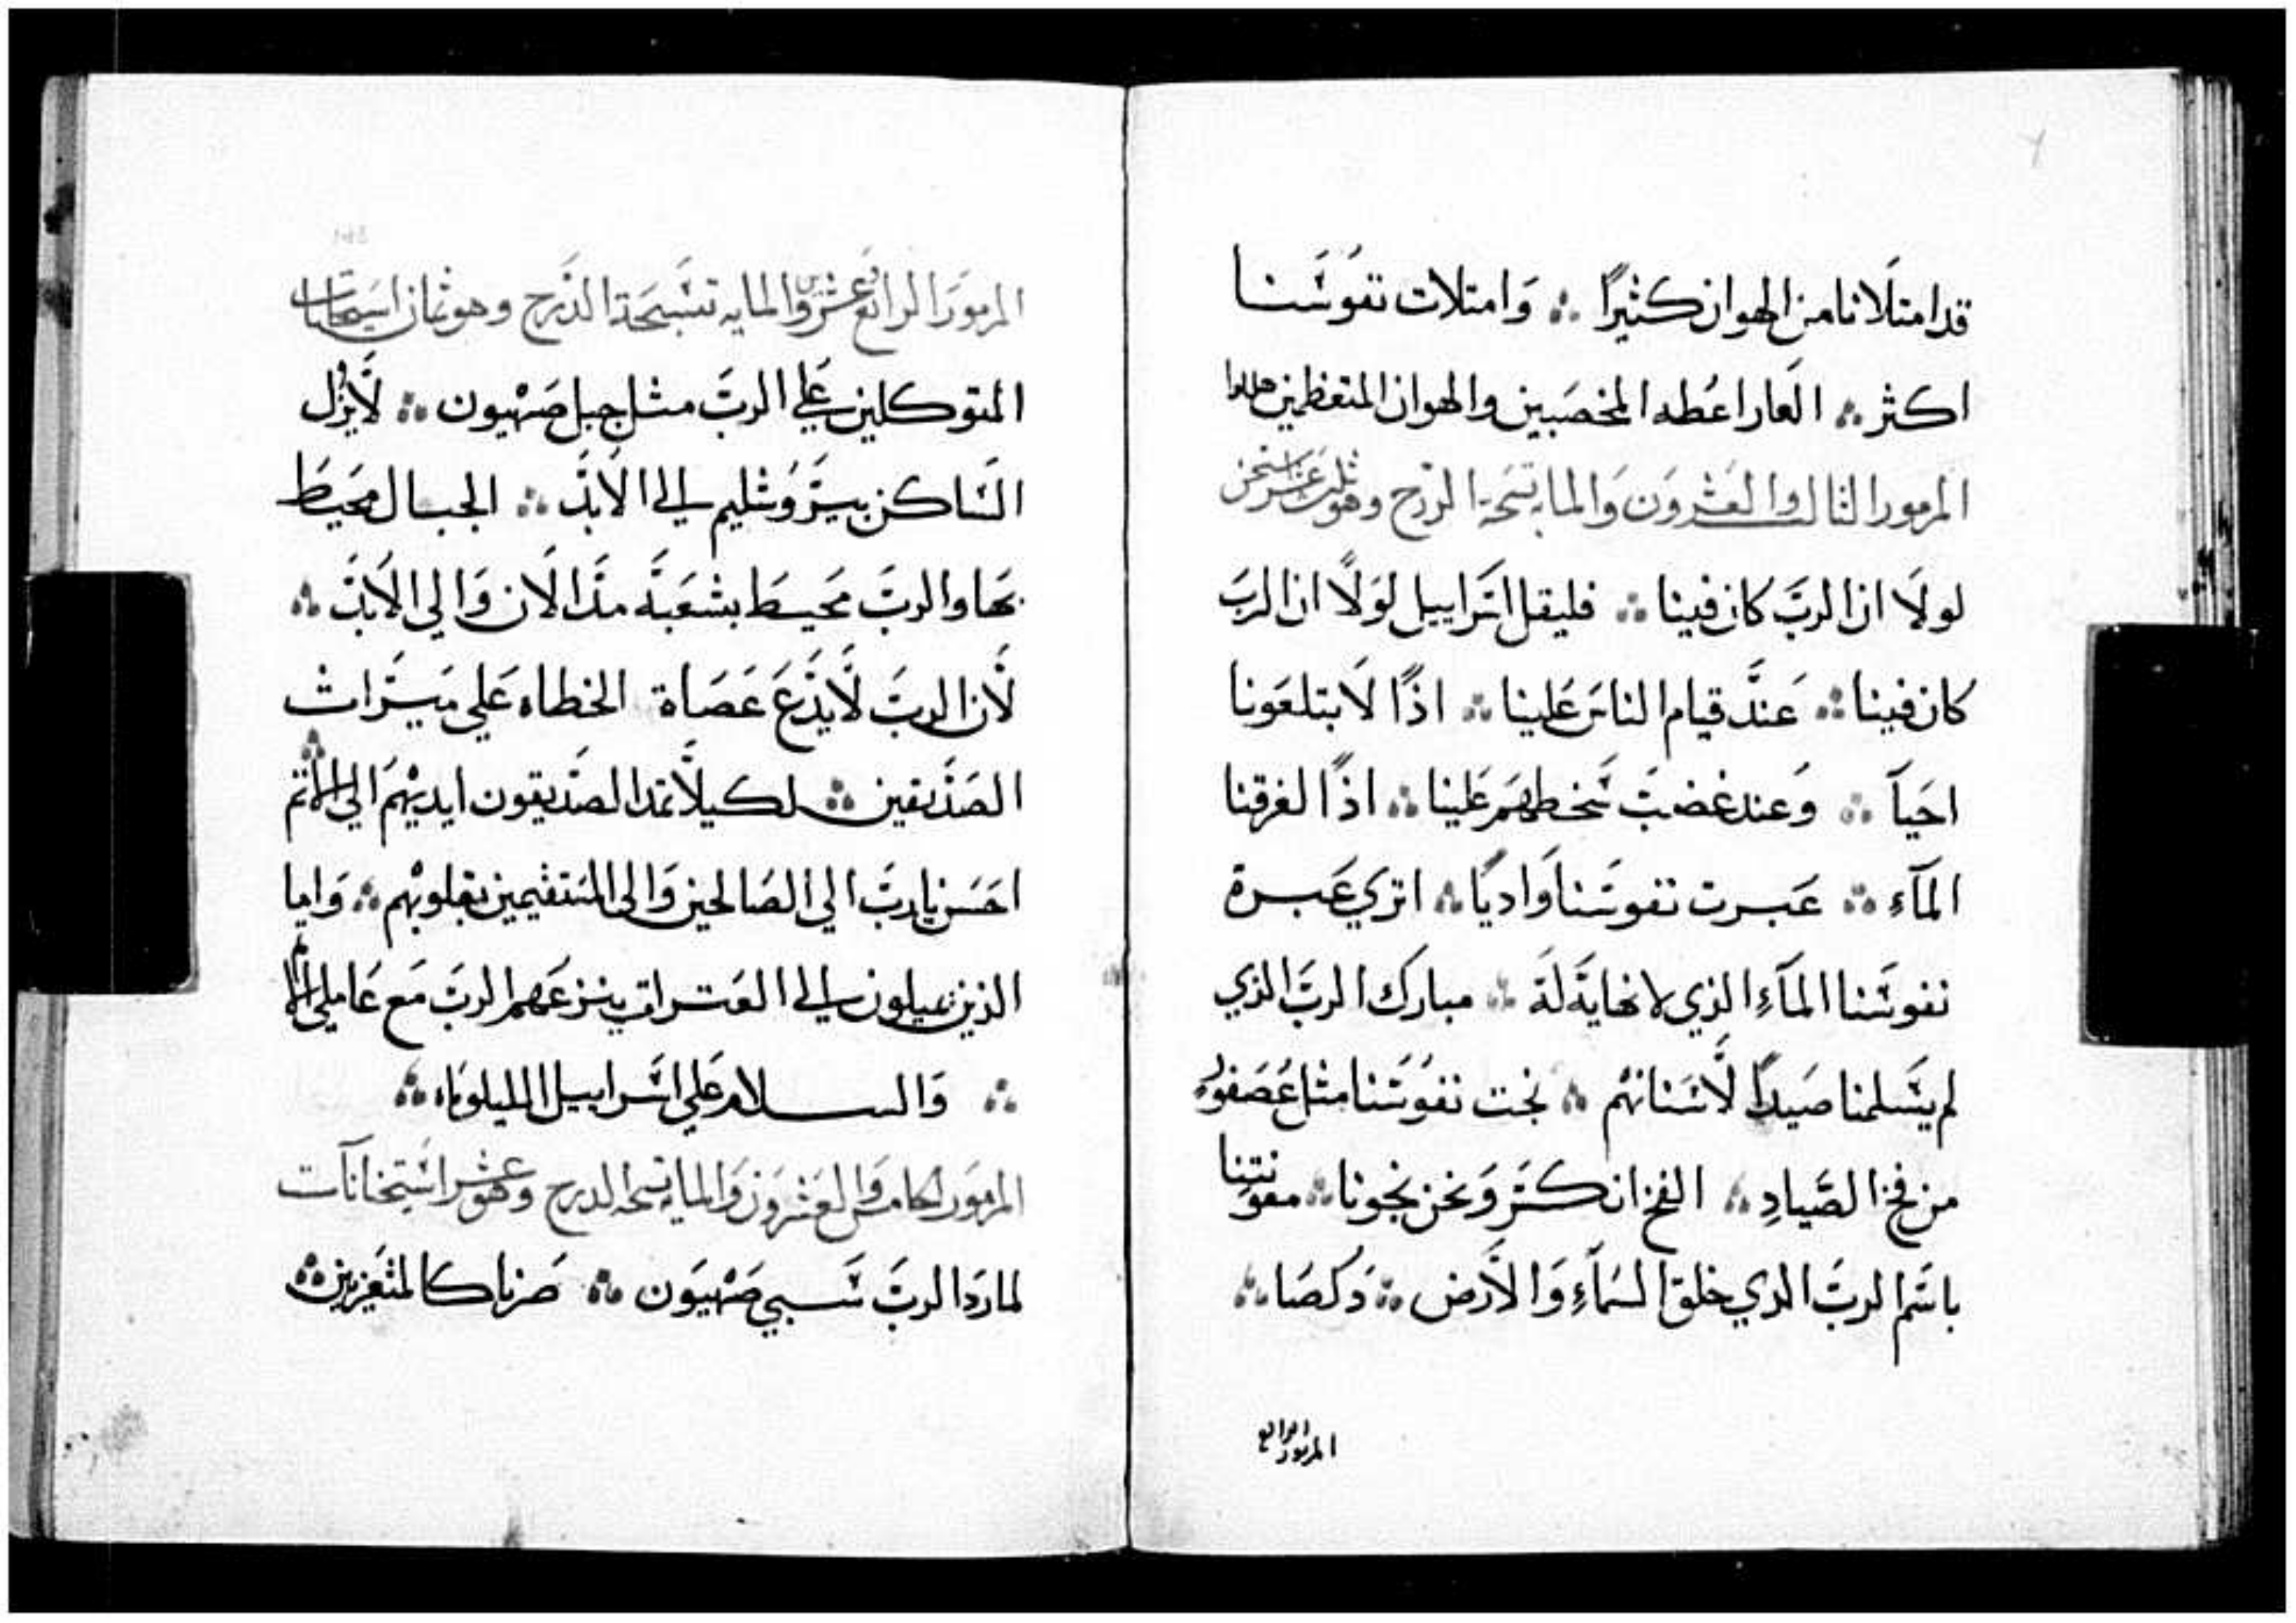 قد امتلانا من الهوان كثيرًا ؞ وَامتلات نفوسنا
اكثر ؞ العار اعطه المخصبين والهوان المتعظمين هللوا
المزمور الثالث والعشرون والمايه تسبحة الدرج وهو ثلث عشر
لولا ان الربّ كان فينا ؞ فليقل اسراييل لولا ان الربّ
كان فينا ؞ عند قيام الناس علينا ؞ اذًا لابتلعونا
احيآ ؞ وعند غضب سخطهم علينا ؞ اذًا لغرقنا
المآء ؞ عبرت نفوسنا واديًا ؞ اتري عبرة
نفوسنا المآء الذي لا نهاية له ؞ مبارك الربّ الذي
لم يسلمنا صيدًا لاسنانهم ؞ نجت نفوسنا مثل عصفور
من فخ الصّيادِ ؞ الفخ انكسر ونحن نجونا ؞ معونتنا
باسم الربّ الدي خلق السمآء والارض ؞
المزمور الرابع
المزمور الرابع عشرين والمايه تسبحة الدرج وهو ثمان
المتوكلين علي الربّ مثل جبل صهيون ؞ لا يزل
الساكن بيروشليم الي الابد ؞ الجبال محيط
بها والربّ محيط بشعبه مذ الان والي الابد ؞
لان الربّ لا يدع عصاة الخطاه علي ميراث
الصديقين ؞ لكيلا تمد الصديقون ايديهم الي الاثم ؞
احسن يا ربّ الي الصالحين والي المستقيمين بقلوبهم ؞ واما
الذين يميلون الي العثرات ينزعهم الربّ مع عاملي الاثم
؞ والسلام علي اسراييل الليلوياه ؞
المزمور الخامس والعشرون والمايه تسبحه الدرج وهو عشر استيخانآت
لما رد الربّ سبي صهيون ؞ صرنا كالمتعزيين ؞